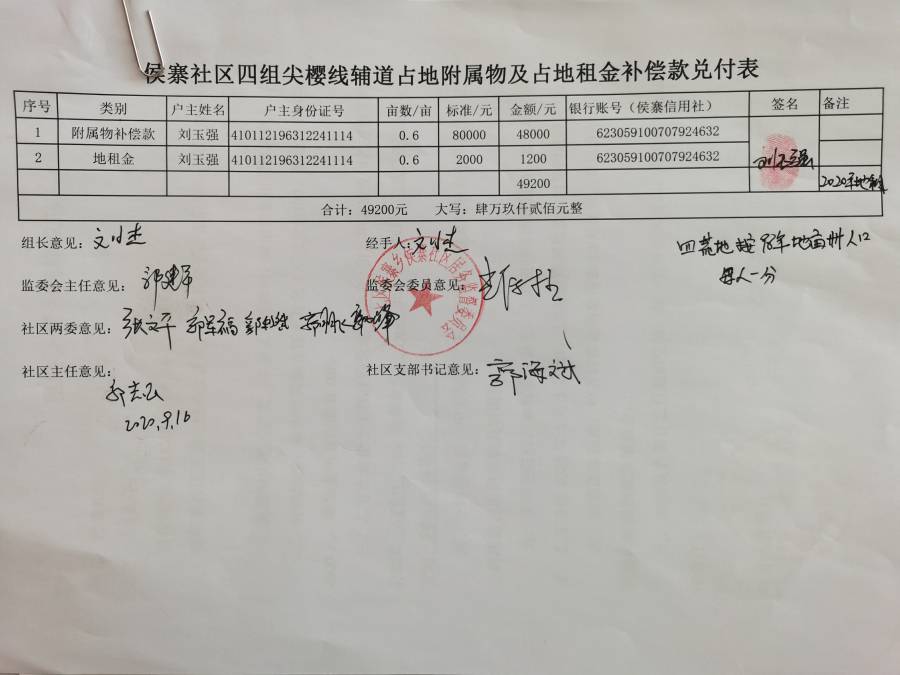 侯寨社区四组尖樱线辅道占地附属物及占地租金补偿款兑付表
序号 类别 户主姓名 户主身份证号 亩数/亩 标准/元 金额/元 银行账号（侯寨信用社） 签名 备注
1 附属物补偿款 刘玉强 410112196312241114 0.6 80000 48000 623059100707924632
2 地租金 刘玉强 410112196312241114 0.6 2000 1200 623059100707924632 刘玉强
49200 2020年地租
合计：49200元 大写：肆万玖仟贰佰元整
组长意见： 经手人：
四荒地 年地亩 人口
每人一分
监委会主任意见： 监委会委员意见：
社区两委意见：张文平
社区主任意见： 社区支部书记意见：郭海斌
2020.9.16